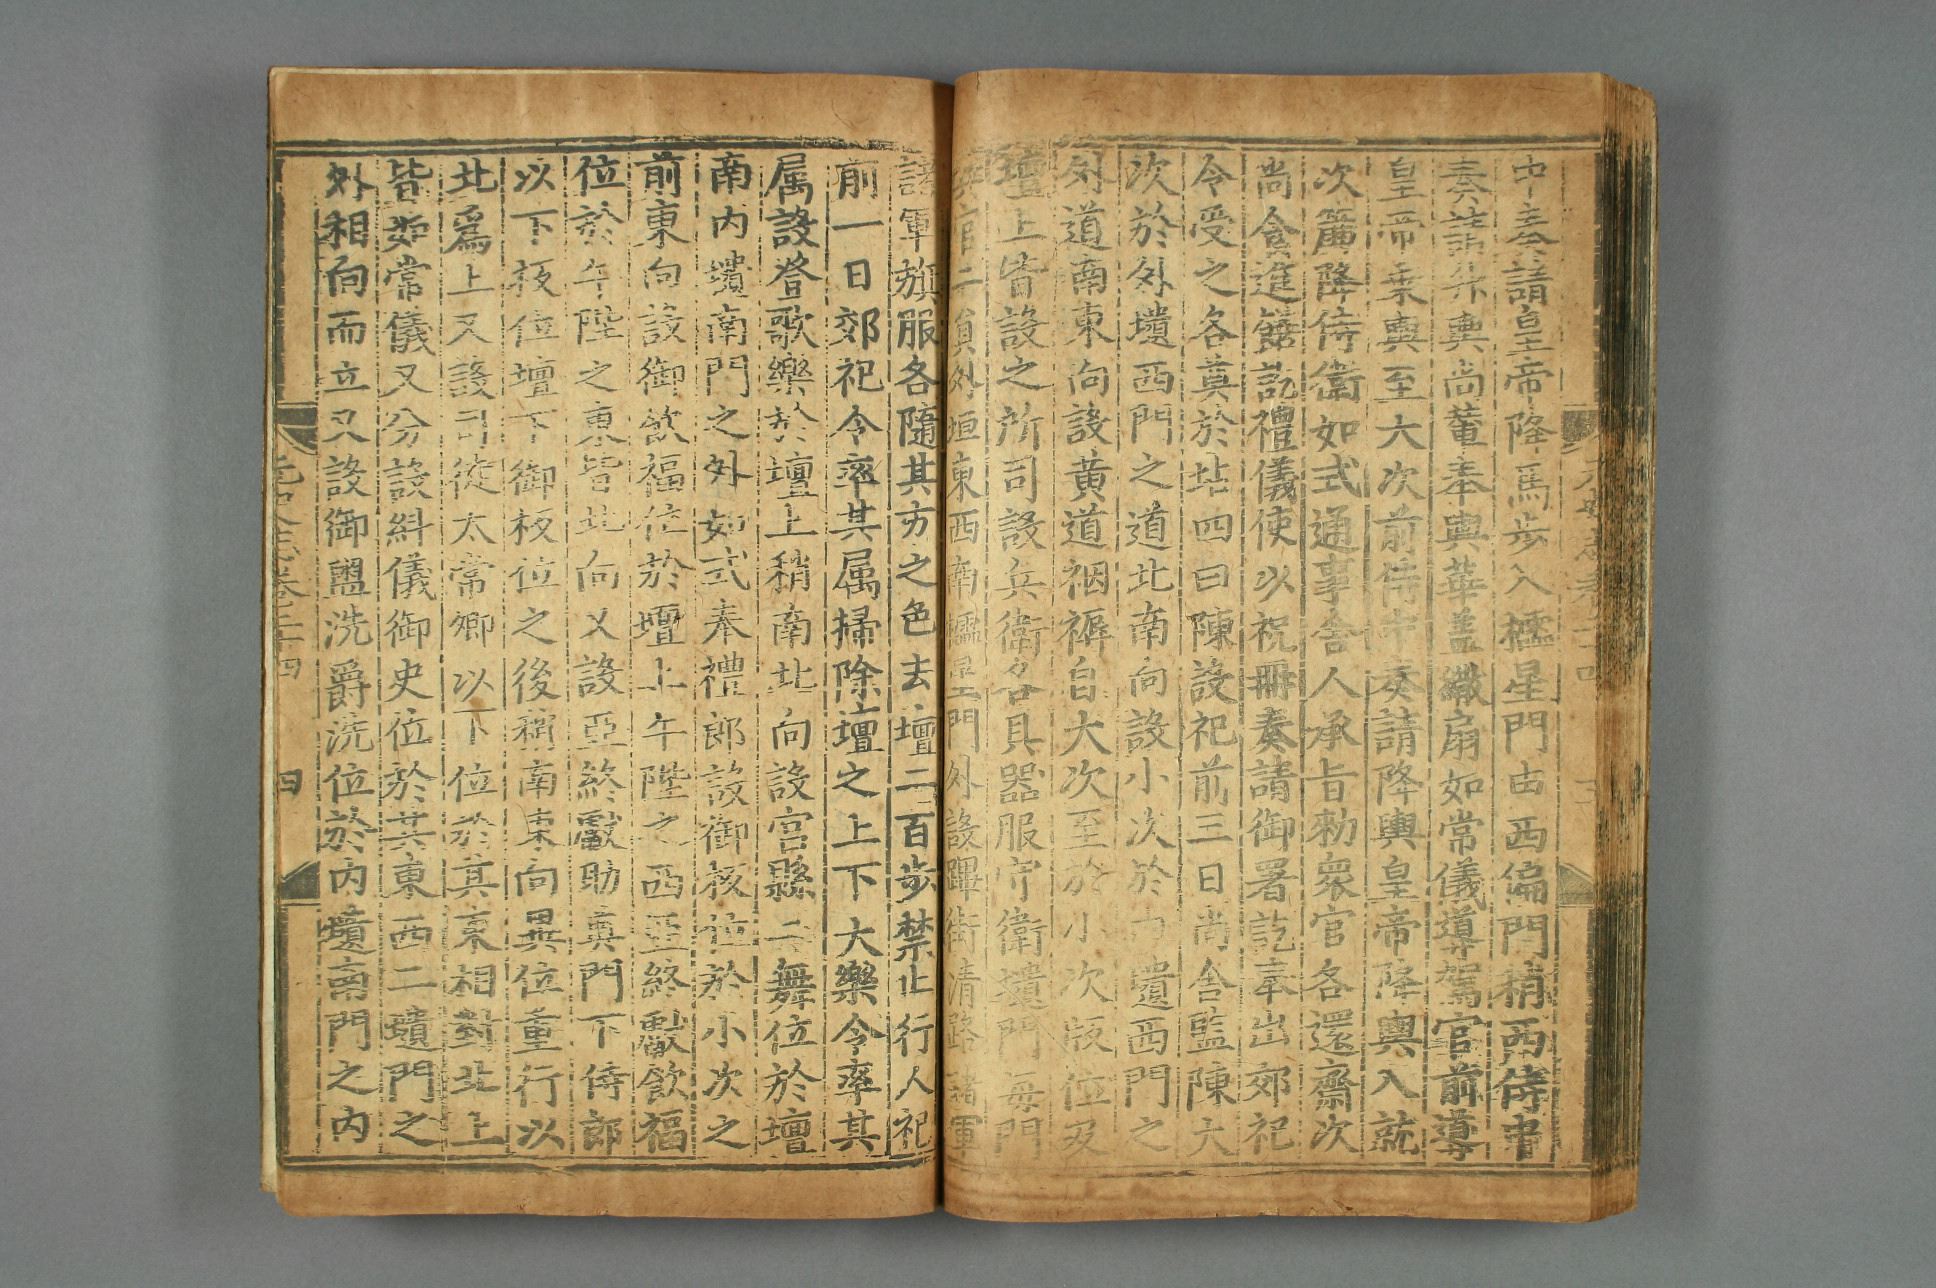 中奏請皇帝降馬步入櫺星門由西偏門稍西侍中
奏請升輿尚輦奉輿華盖繖扇如常儀導駕官前導
皇帝乗輿至大次前侍中奏請降輿皇帝降輿入就
次簾降侍衛如式通事舎人承旨勑衆官各還齋次
尚食進饍訖禮儀使以祝冊奏請御署訖奉出郊祀
令受之各奠於坫四曰陳設祀前三日尚舎監陳大
次於外壝西門之道北南向設小次於内壝西門之
外道南東向設黄道裀褥自大次至於小次版位及
壇上皆設之所司設兵衛各具器服守衛壝門每門
兵官二員外垣東西南櫺星門外設蹕街清路諸軍
諸軍旗服各隨其方之色去壇二百步禁止行人祀
前一日郊祀令率其属掃除壇之上下大樂令率其
属設登歌樂於壇上稍南北向設宮縣二舞位於壇
南内壝南門之外如式奉禮郎設御板位於小次之
前東向設御飲福位於壇上午陛之西亞終獻飲福
位於午陛之東皆北向又設亞終獻助奠門下侍郎
以下板位壇下御板位之後稍南東向異位重行以
北爲上又設司徒太常卿以下位於其東相對北上
皆如常儀又分設糾儀御史位於其東西二壝門之
外相向而立又設御盥洗爵洗位於内壝南門之内
元史志卷二十四
四